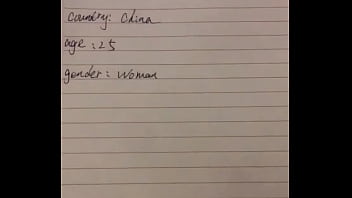 Country: China
age : 25
gender : woman